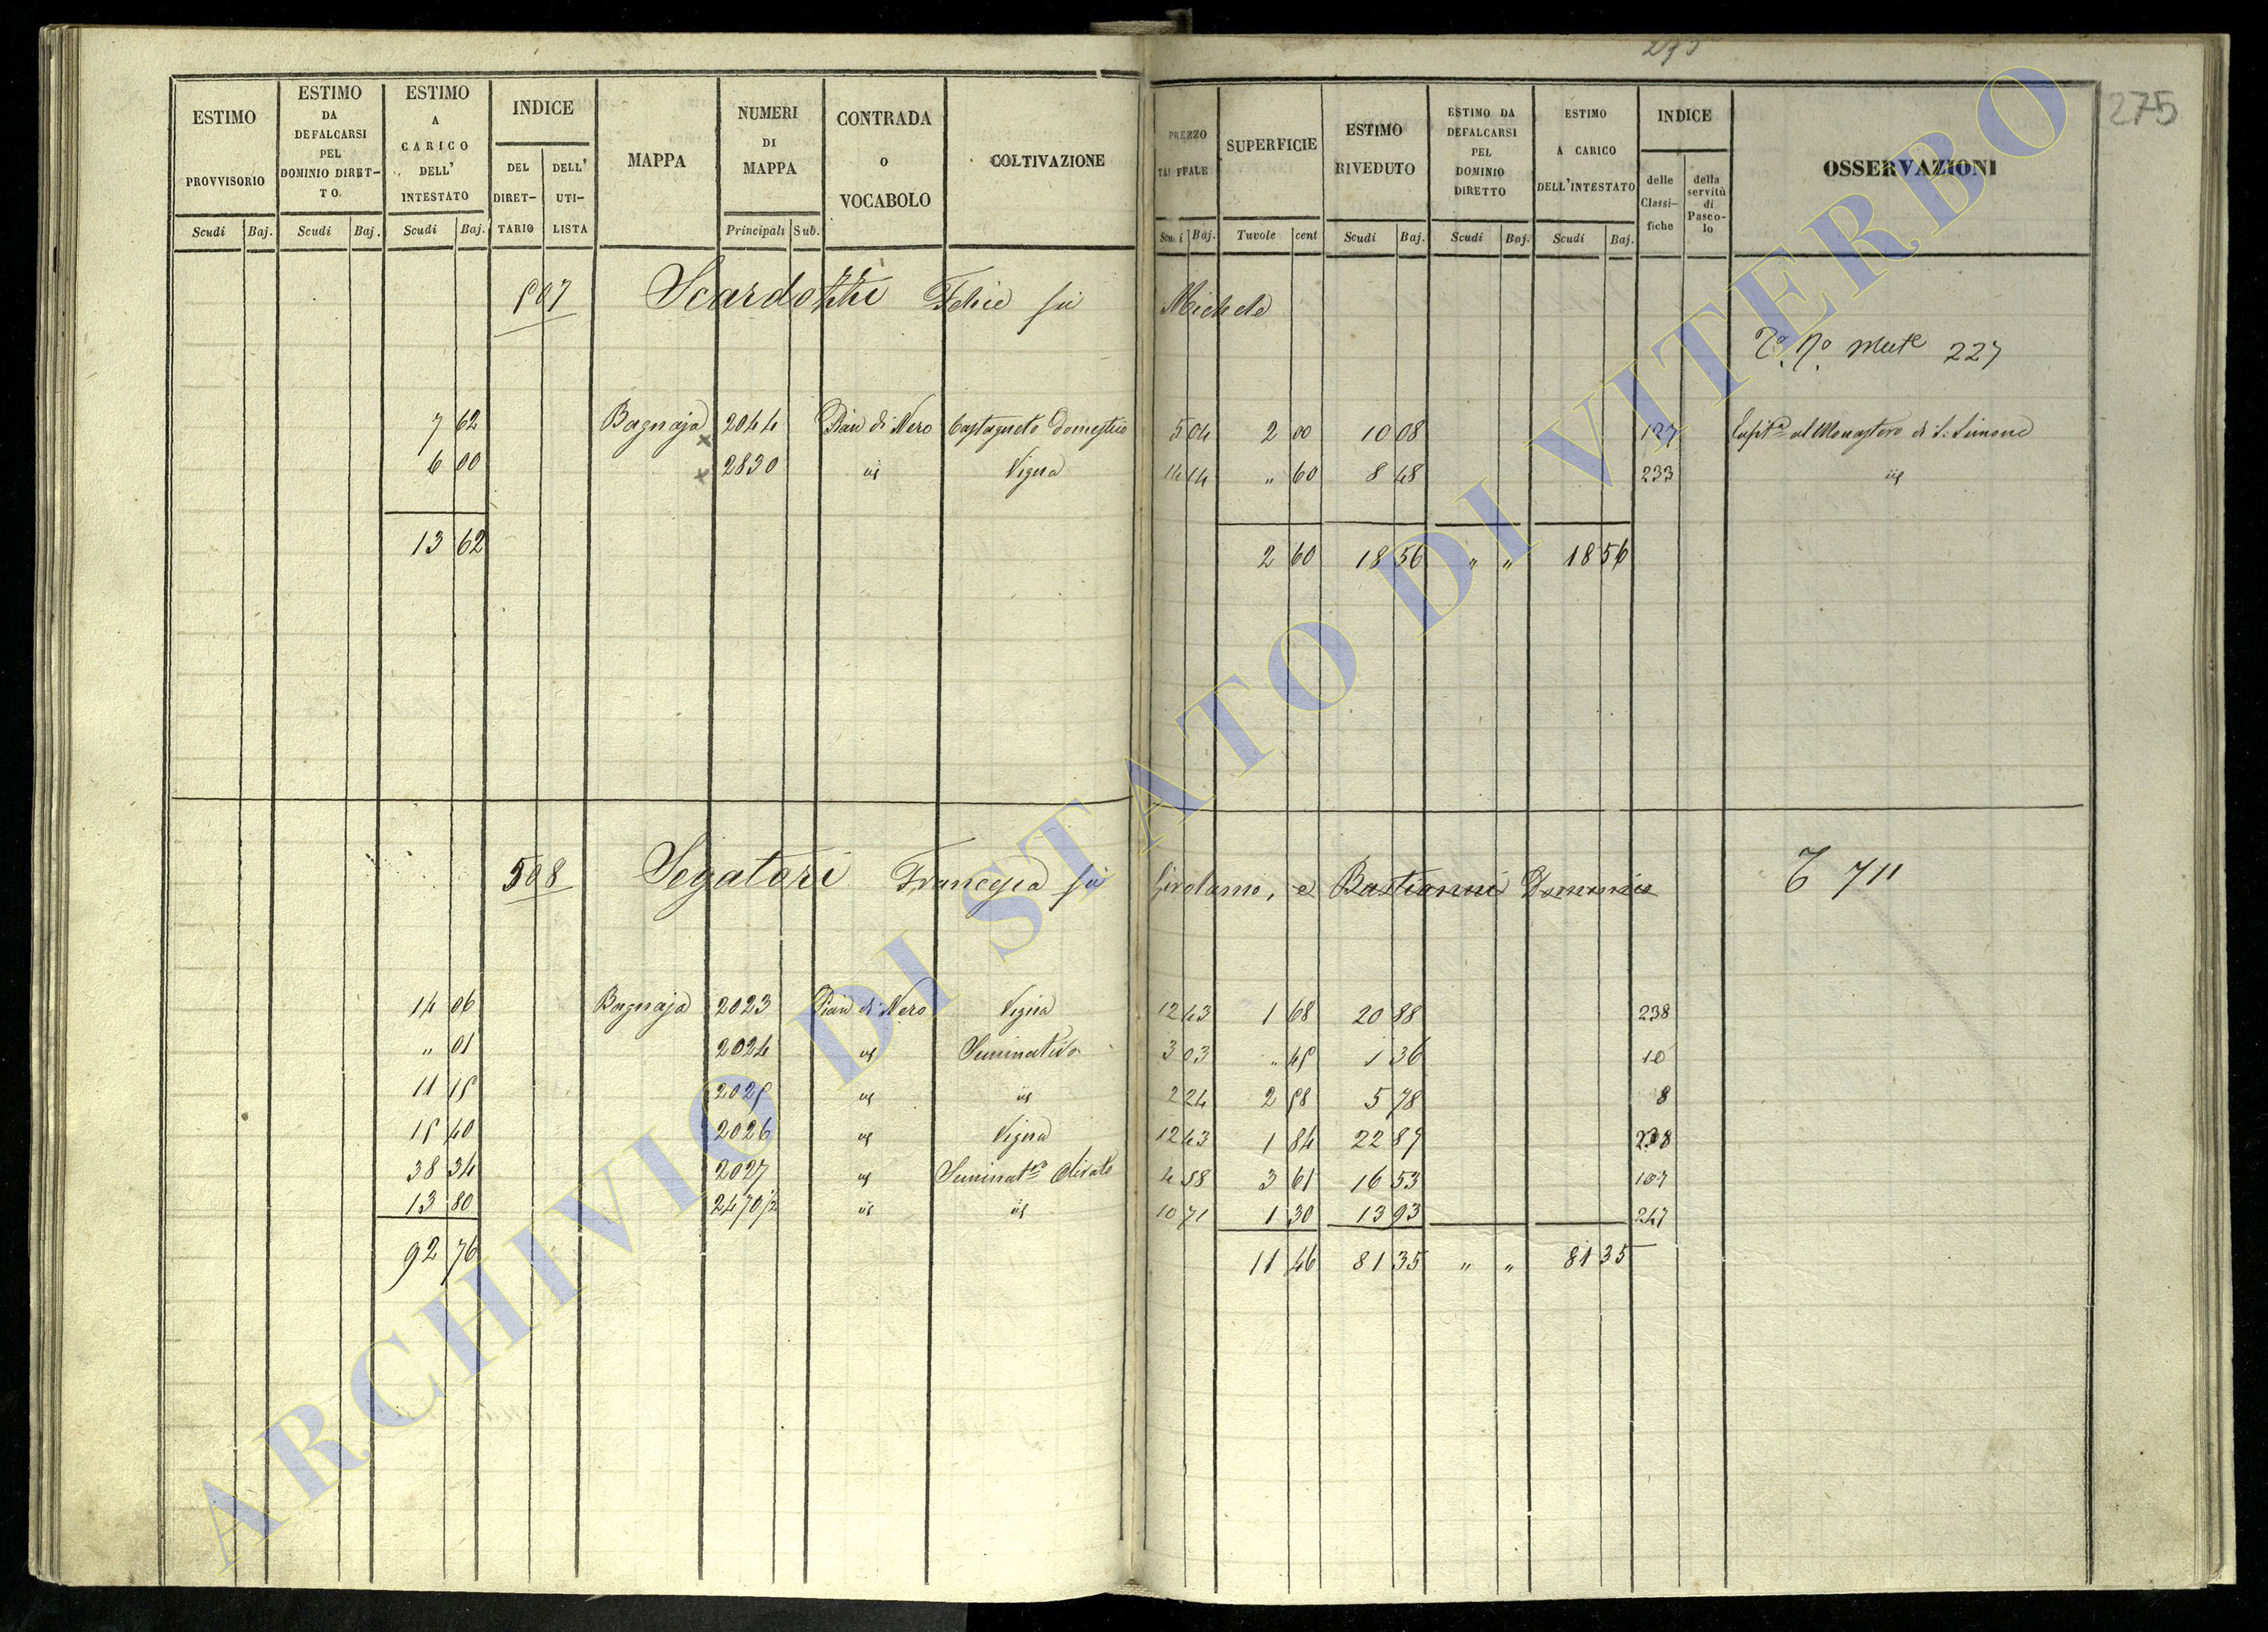 275
275
ESTIMO PROVVISORIO
ESTIMO DA DEFALCARSI PEL DOMINIO DIRET-TO.
ESTIMO A CARICO DELL' INTESTATO
INDICE
DEL DIRET-TARIO
DELL' UTI-LISTA
MAPPA
NUMERI DI MAPPA
CONTRADA o VOCABOLO
COLTIVAZIONE
PREZZO
SUPERFICIE
ESTIMO RIVEDUTO
ESTIMO DA DEFALCARSI PEL DOMINIO DIRETTO
ESTIMO A CARICO DELL'INTESTATO
INDICE
delle Classi-fiche
della servitù di Pasco-lo
OSSERVAZIONI
Scudi Baj. Scudi Baj. Scudi Baj. Principali Sub. Baj. Tavole cent Scudi Baj. Scudi Baj. Scudi Baj.
507 Scardozzi Felice fù Michele
Mut.e 227
7 62 Bagnaja 2044 Pian di Nero Castagneto Domestico 5 04 2 00 10 08 127 al Monastero di S. Simone
6 00 2830 id Vigna 14 14 " 60 8 48 233 id
13 62 2 60 18 56 " " 18 56
508 Segatori Francesca fù Girolamo, e Bastianini Domenico
T 711
14 06 Bagnaja 2023 Pian di Nero Vigna 12 43 1 68 20 88 238
" 01 2024 id Seminativo 3 03 " 45 1 36 10
11 15 2025 id id 2 24 2 58 5 78 8
15 40 2026 id Vigna 12 43 1 84 22 87 238
38 34 2027 id Seminat.vo Olivato 4 58 3 61 16 53 107
13 80 2470/2 id id 10 71 1 30 13 93 247
92 76 11 46 81 35 " " 81 35
ARCHIVIO DI STATO DI VITERBO